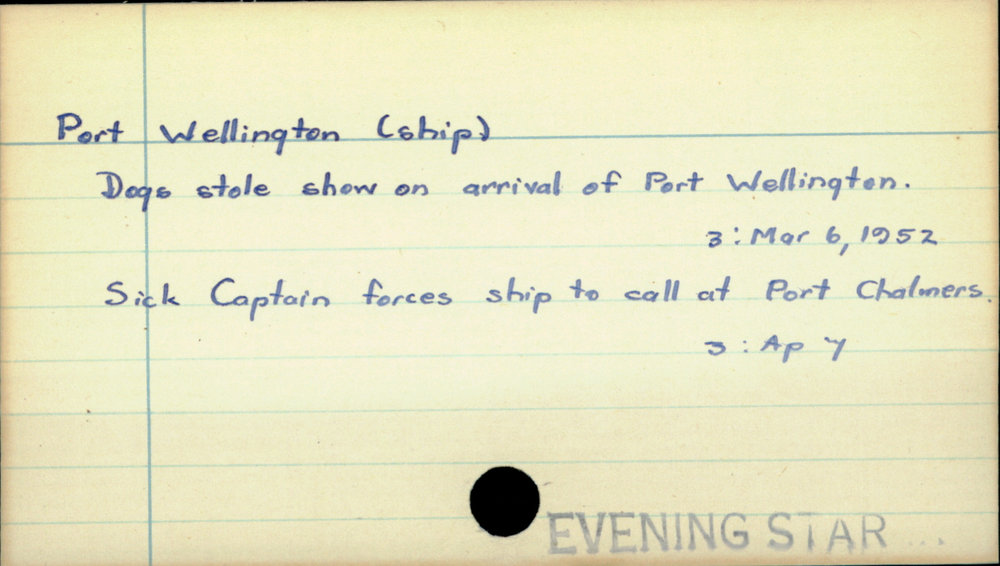 Port Wellington (ship)
Dogs stole show on arrival of Port Wellington.
3: Mar 6, 1952
Sick Captain forces ship to call at Port Chalmers.
3: Ap 7
EVENING STAR ...